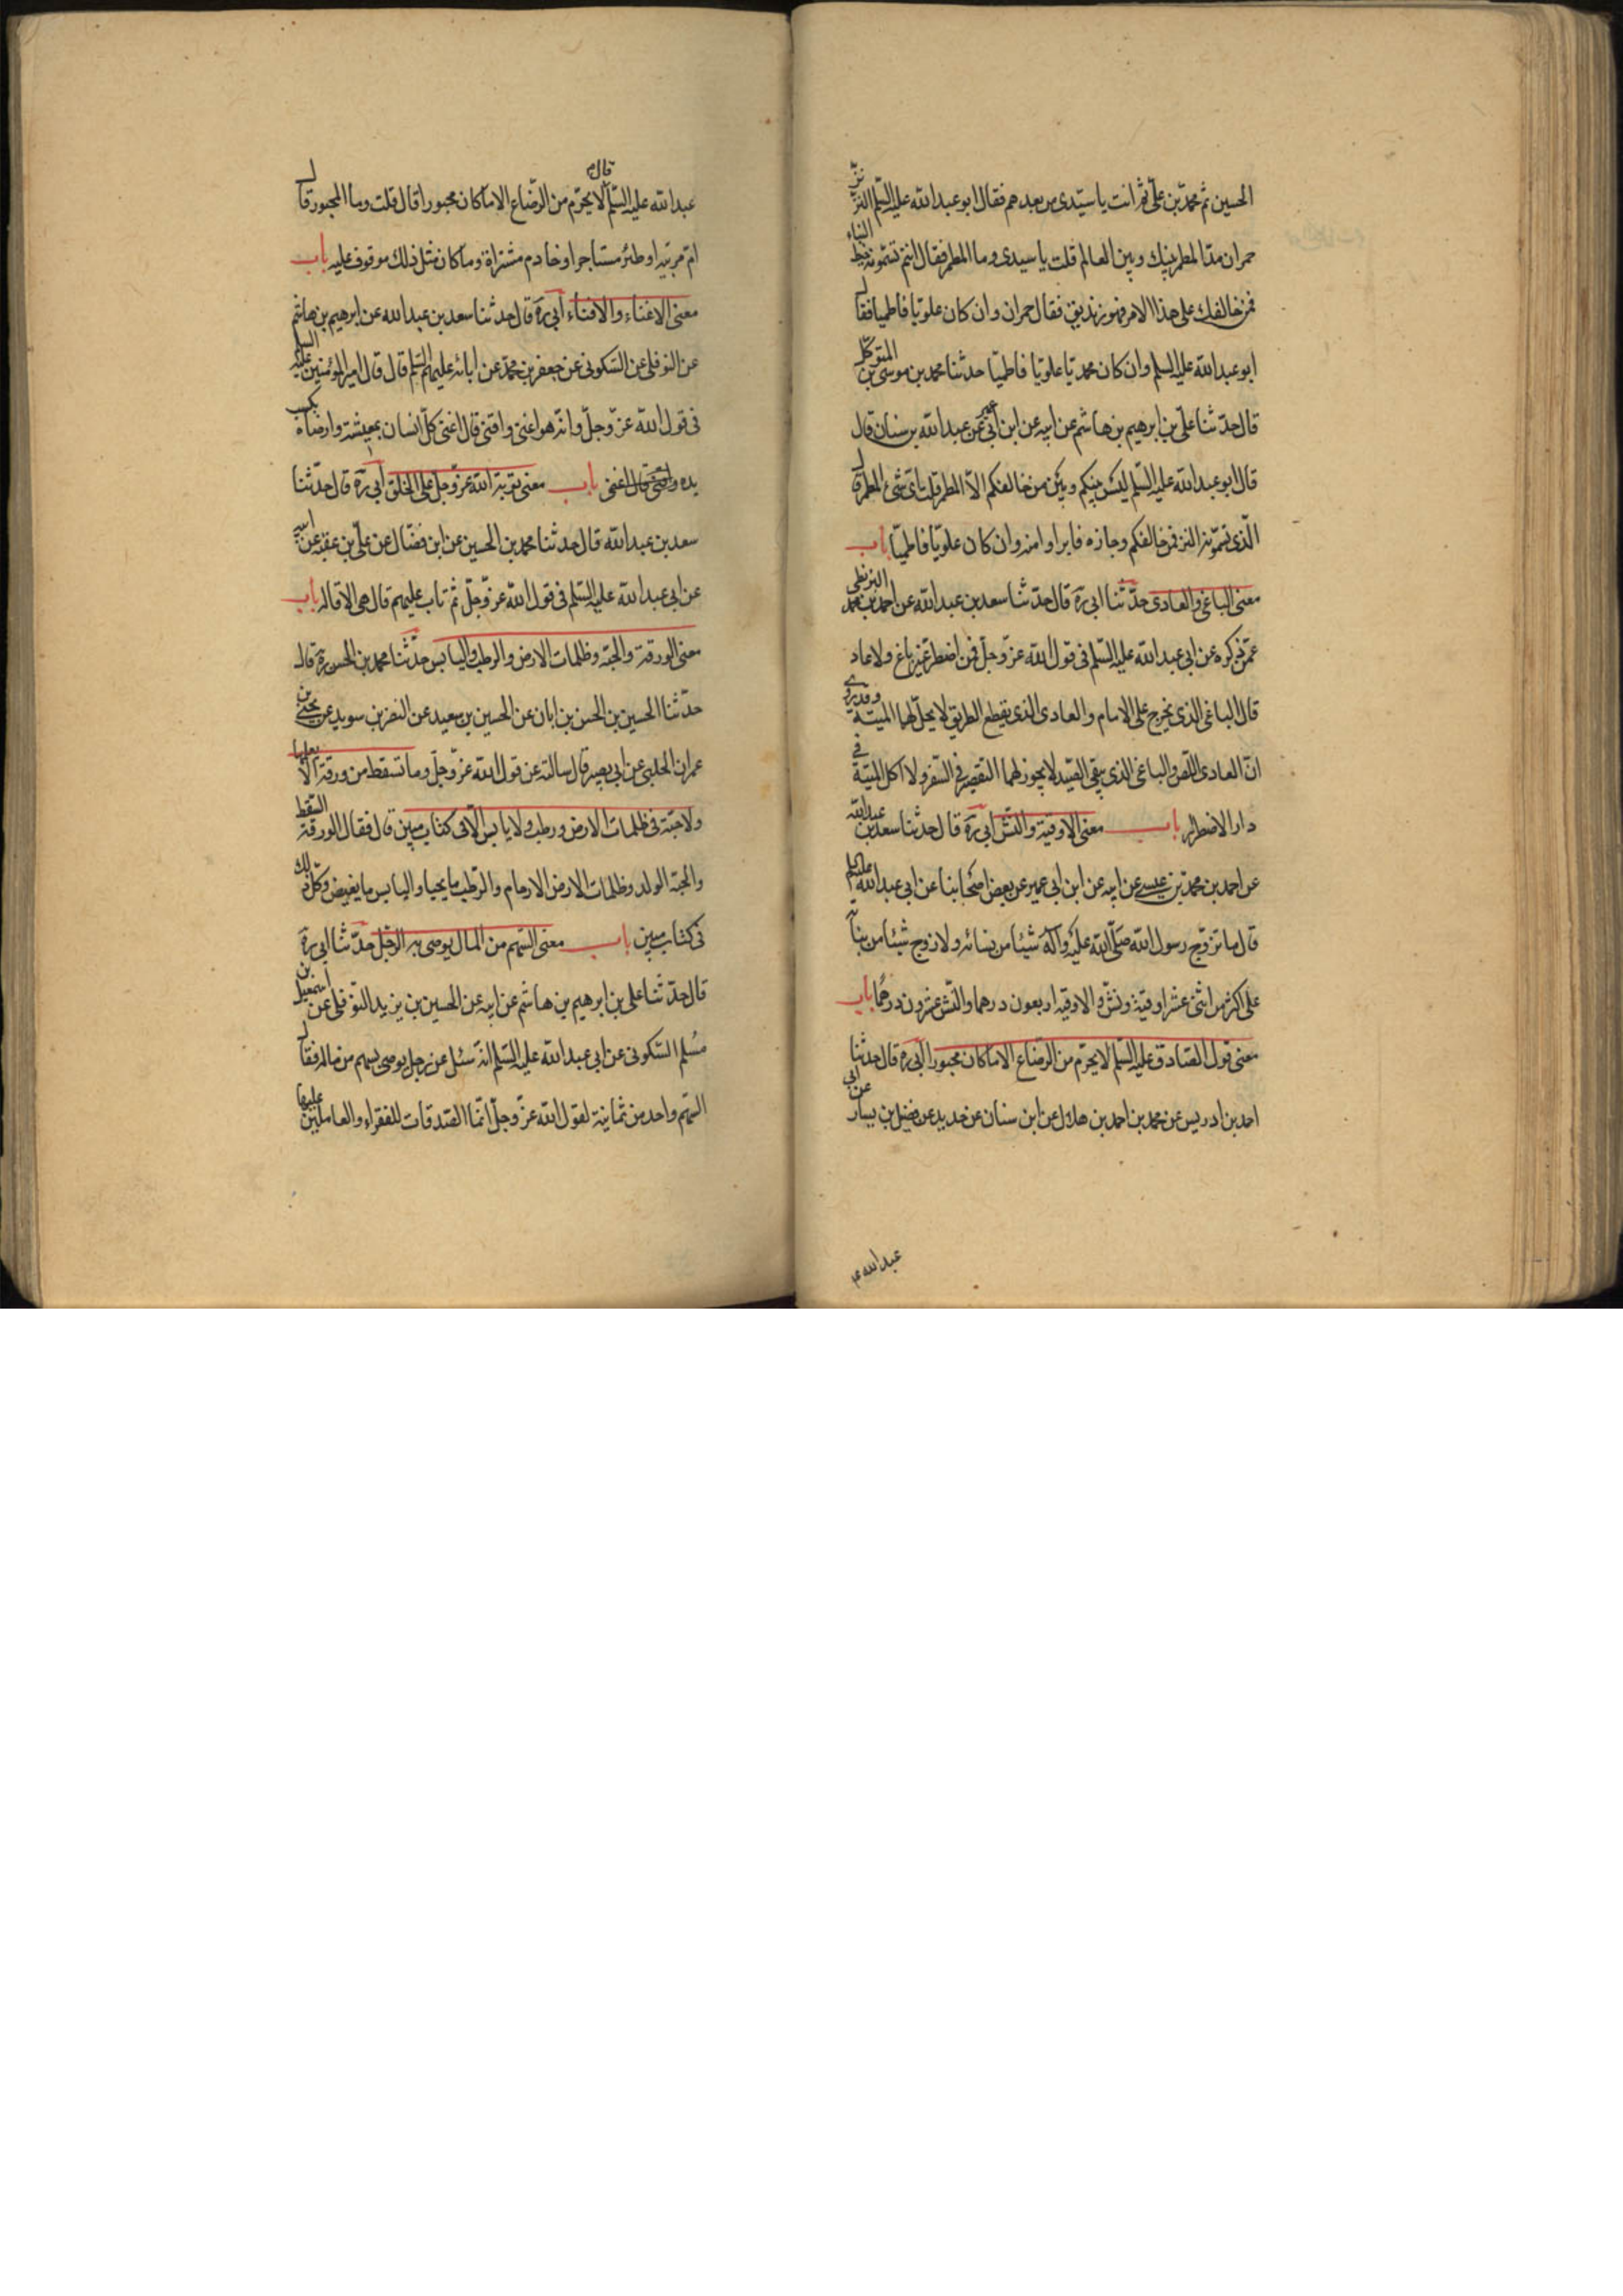 الحسين ثم محمد بن علي ثم انت يا سيدي من بعدهم فقال ابو عبدالله عليه السلم التر تر
حمران مد المطمر بينك وبين العالم قلت يا سيدي وما المطمر فقال انتم تسمونه خيط البناء
فمن خالفك على هذا الامر فهو زنديق فقال حمران وان كان علويا فاطميا فقال
ابو عبدالله عليه السلم وان كان محمديا علويا فاطميا حدثنا محمد بن موسى بن المتوكل
قال حدثنا علي بن ابرهيم بن هاشم عن ابيه عن ابن ابي عمير عن عبدالله بن سنان قال
قال ابو عبدالله عليه السلم ليس بينكم وبين من خالفكم الا المطمر قلت واي شيء المطمر قال
الذي تسمونه التر فمن خالفكم وجازه فابراوا منه وان كان علويا فاطميا باب
معنى الباغي والعادي حدثنا ابي ره قال حدثنا سعد بن عبدالله عن احمد بن محمد البزنطي
عمن ذكره عن ابي عبدالله عليه السلم في قول الله عز وجل فمن اضطر غير باغ ولا عاد
قال الباغي الذي يخرج على الامام والعادي الذي يقطع الطريق لا يحل لهما الميتة وقد روي
ان العادي اللص والباغي الذي يبغي الصيد لا يجوز لهما التقصير في السفر ولا اكل الميتة في
دار الاضطرار باب معنى الاوقية والنش ابي ره قال حدثنا سعد بن عبدالله
عن احمد بن محمد بن عيسى عن ابيه عن ابن ابي عمير عن بعض اصحابنا عن ابي عبدالله عليه السلم
قال ما تزوج رسول الله صلى الله عليه وآله شيئا من نسائه ولا زوج شيئا من بناته
على اكثر من اثنى عشر اوقية ونش والاوقيه اربعون درهما والنش عشرون درهما باب
معنى قول الصادق عليه السلم لا يحرم من الرضاع الا ما كان مجبورا ابي ره قال حدثنا
احمد بن ادريس عن محمد بن احمد بن هلال عن ابن سنان عن حديد عن فضيل بن يسار عن ابي
عبدالله ع
عبدالله عليه السلم قال لا يحرم من الرضاع الا ما كان مجبورا قال قلت وما المجبور قال
ام مربية او ظئر مستاجر او خادم مشتراة وما كان مثل ذلك موقوف عليه باب
معنى الاغناء والاقناء ابي ره قال حدثنا سعد بن عبدالله عن ابرهيم بن هاشم
عن النوفلي عن السكوني عن جعفر بن محمد عن ابائه عليهم السلم قال قال امير المؤمنين عليه السلم
في قول الله عز وجل وانه هو اغنى واقنى قال اغنى كل انسان بمعيشته وارضاه بكسب
يده واقنى قال اغنى باب معنى توبة الله عز وجل على الخلق ابي ره قال حدثنا
سعد بن عبدالله قال حدثنا محمد بن الحسين عن ابن فضال عن علي بن عقبه عن ابيه
عن ابي عبدالله عليه السلم في قول الله عز وجل ثم تاب عليهم قال هي الاقاله باب
معنى الورقة والحبة وظلمات الارض والرطب واليابس حدثنا محمد بن الحسن ره قال
حدثنا الحسين بن الحسن بن ابان عن الحسين بن سعيد عن النضر بن سويد عن يحيى بن
عمران الحلبي عن ابي بصير قال سالته عن قول الله عز وجل وما تسقط من ورقة الا يعلمها
ولا حبة في ظلمات الارض ورطب ولا يابس الا في كتاب مبين قال فقال الورقة السقط
والحبة الولد وظلمات الارض الارحام والرطب ما يحيا واليابس ما يغيض وكل ذلك
في كتاب مبين باب معنى السهم من المال يوصي به الرجل حدثنا ابي ره
قال حدثنا علي بن ابرهيم بن هاشم عن ابيه عن الحسين بن يزيد النوفلي عن اسمعيل بن
مسلم السكوني عن ابي عبدالله عليه السلم انه سئل عن رجل يوصي بسهم من ماله فقال
السهم واحد من ثمانية لقول الله عز وجل انما الصدقات للفقراء والعاملين عليها